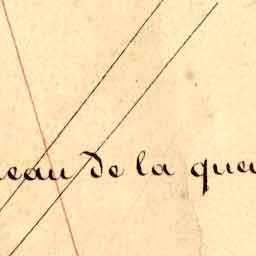 eau de la que